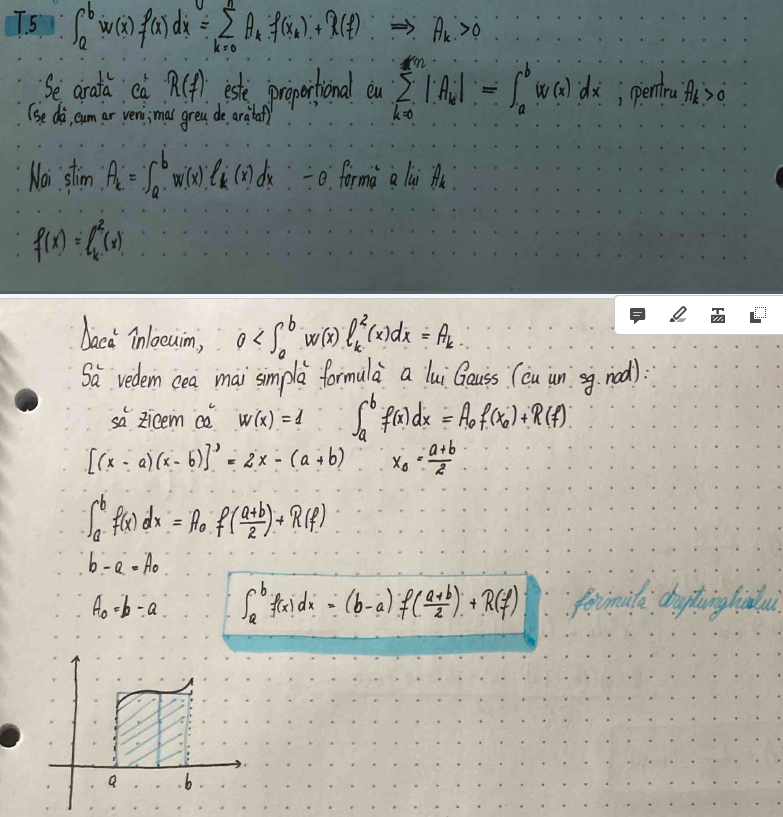 T.5 ∫_a^b w(x) f(x) dx = Σ_{k=0}^n A_k f(x_k) + R(f) ⇒ A_k > 0
Se arată că R(f) este proporțional cu Σ_{k=0}^m |A_k| = ∫_a^b w(x) dx, pentru A_k > 0
(se dă, cum ar veni; mai greu de arătat)
Noi știm A_k = ∫_a^b w(x) l_k(x) dx - o formă a lui A_k
f(x) = l_k^2(x)
Dacă înlocuim, 0 < ∫_a^b w(x) l_k^2(x) dx = A_k.
Să vedem cea mai simplă formulă a lui Gauss (cu un sg. nod):
să zicem că w(x) = 1 ∫_a^b f(x) dx = A_0 f(x_0) + R(f)
[(x - a)(x - b)]' = 2x - (a + b) x_0 = (a+b)/2
∫_a^b f(x) dx = A_0 f((a+b)/2) + R(f)
b - a = A_0
A_0 = b - a ∫_a^b f(x) dx = (b-a) f((a+b)/2) + R(f) formula dreptunghiului
a b